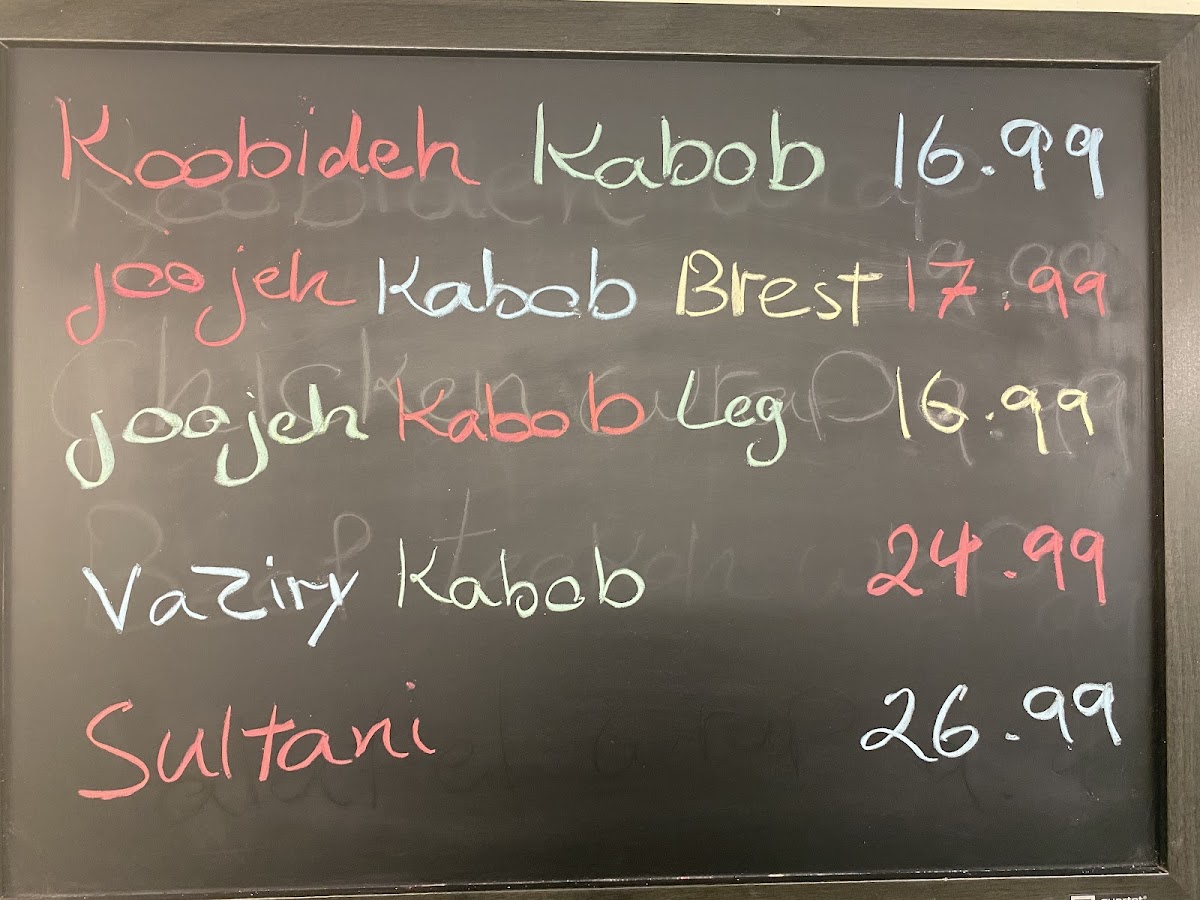 Koobideh Kabob 16.99
joojeh Kabob Brest 17.99
joojeh Kabob Leg 16.99
Vaziry Kabob 24.99
Sultani 26.99